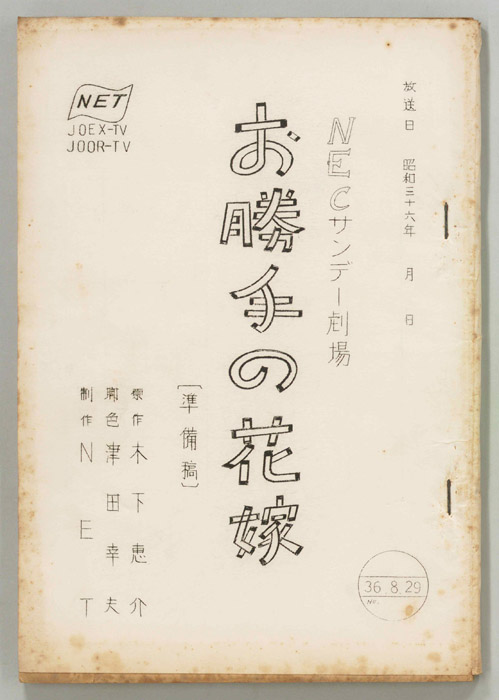 放送日 昭和三十六年 月 日
NECサンデー劇場
お勝手の花嫁
[準備稿]
原作 木下惠介
脚色 津田幸夫
制作 NET
NET
JOEX-TV
JOOR-TV
36.8.29
No.